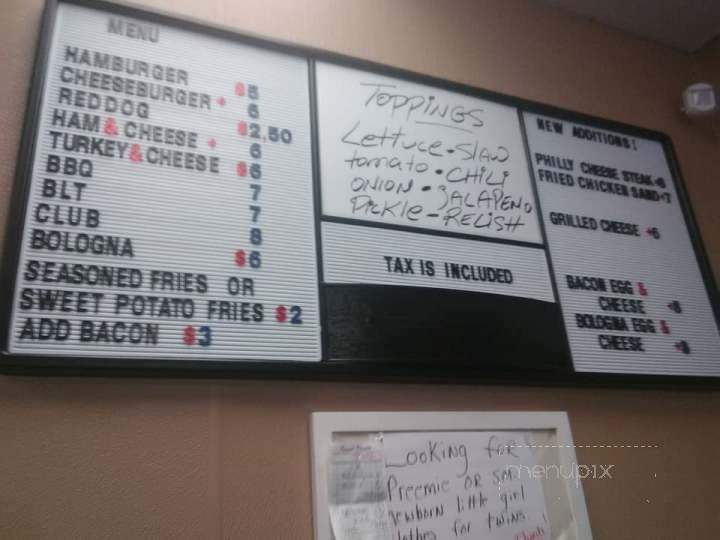 MENU
HAMBURGER $5
CHEESEBURGER + 6
RED DOG $2,50
HAM & CHEESE + 6
TURKEY & CHEESE $6
BBQ 7
BLT 7
CLUB 8
BOLOGNA $6
SEASONED FRIES OR
SWEET POTATO FRIES $2
ADD BACON $3
TOPPINGS
Lettuce • SLAW
tomato • CHILI
ONION • JALAPENO
PICKLE - RELISH
TAX IS INCLUDED
NEW ADDITIONS!
PHILLY CHEESE STEAK
FRIED CHICKEN SAND 7
GRILLED CHEESE
BACON EGG &
CHEESE
BOLOGNA EGG &
CHEESE
LOOKING FOR
Preemie OR
Newborn little girl
clothes for twins
menupix